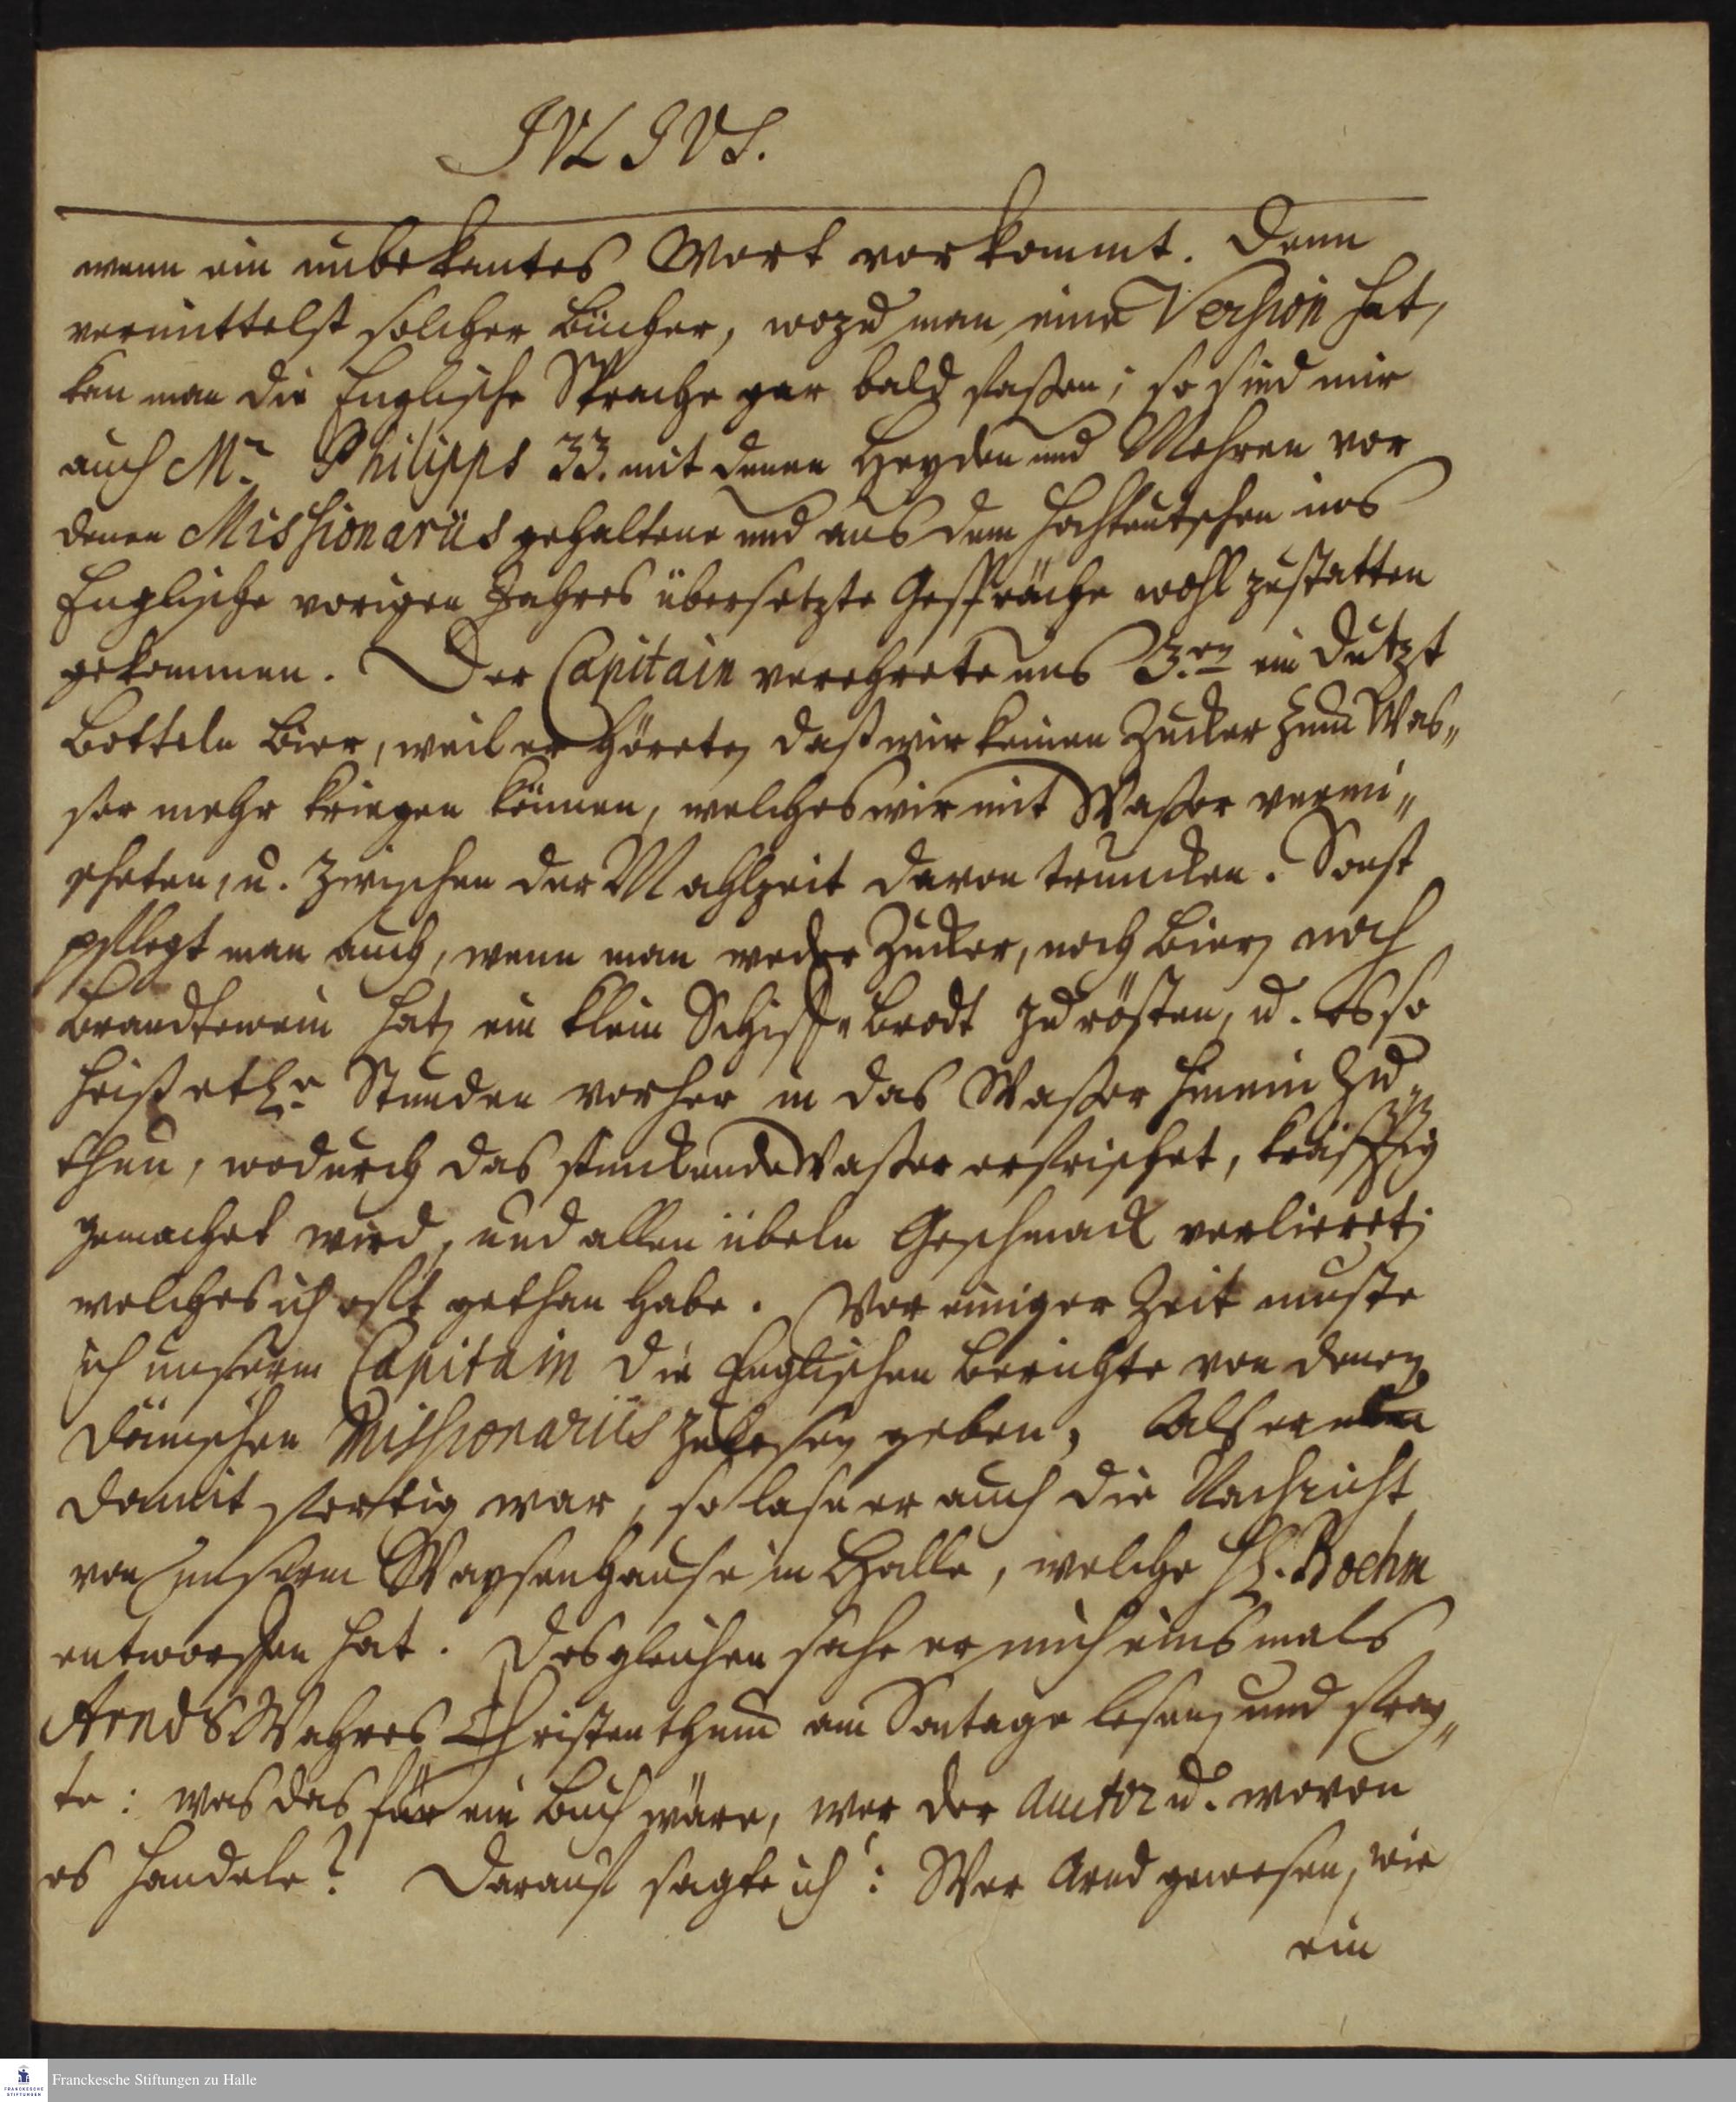 JVLIVS.
wenn ein unbekantes Wort vorkommt. Denn
vermittelst solcher Bücher, wozu man eine Version hat,
kan man die Englische Sprache gar bald faßen; so sind mir
auch Mr. Philipps 33. mit denen Heyden und Mohren von
denen Missionariis gehaltene und aus dem Hochteutschen ins
Englische vorigen Jahres übersetzte Gespräche wohl zustatten
gekommen. Der Capitain verehrete uns 3.en ein Dutzt
Botteln Bier, weil er hörete, daß wir keinen Zucker zum Was„
ser mehr kriegen können, welches wir mit Waßer vermi„
scheten, u. zwischen der Mahlzeit davon truncken. Sonst
pflegt man auch, wenn man weder Zucker, noch Bier, noch
Brandtewein hat, ein klein Schiff-Brodt zu rösten, u. es so
heiß etl. Stunden vorher in das Waßer hinein zu
thun, wodurch das stinckende Waßer erfrischet, kräfftig
gemachet wird, und allen übeln Geschmack verlieret;
welches ich oft gethan habe. Vor einiger Zeit muste
ich unserm Capitain die Englischen Berichte von denen
Dänischen Missionariis zu lesen geben; Als er
damit fertig war, so lase er auch die Nachricht
von unserm Waysenhause in Halle, welche H. Boehm
entworffen hat. Desgleichen sahe er mich einsmals
Arnds Wahres Christenthum am Sontage lesen, und frag„
te: was das für ein Buch wäre, wer der Autor u. wovon
es handele? Darauf sagte ich: Wer Arnd gewesen, wie
ein
Franckesche Stiftungen zu Halle
FRANCKESCHE
STIFTUNGEN